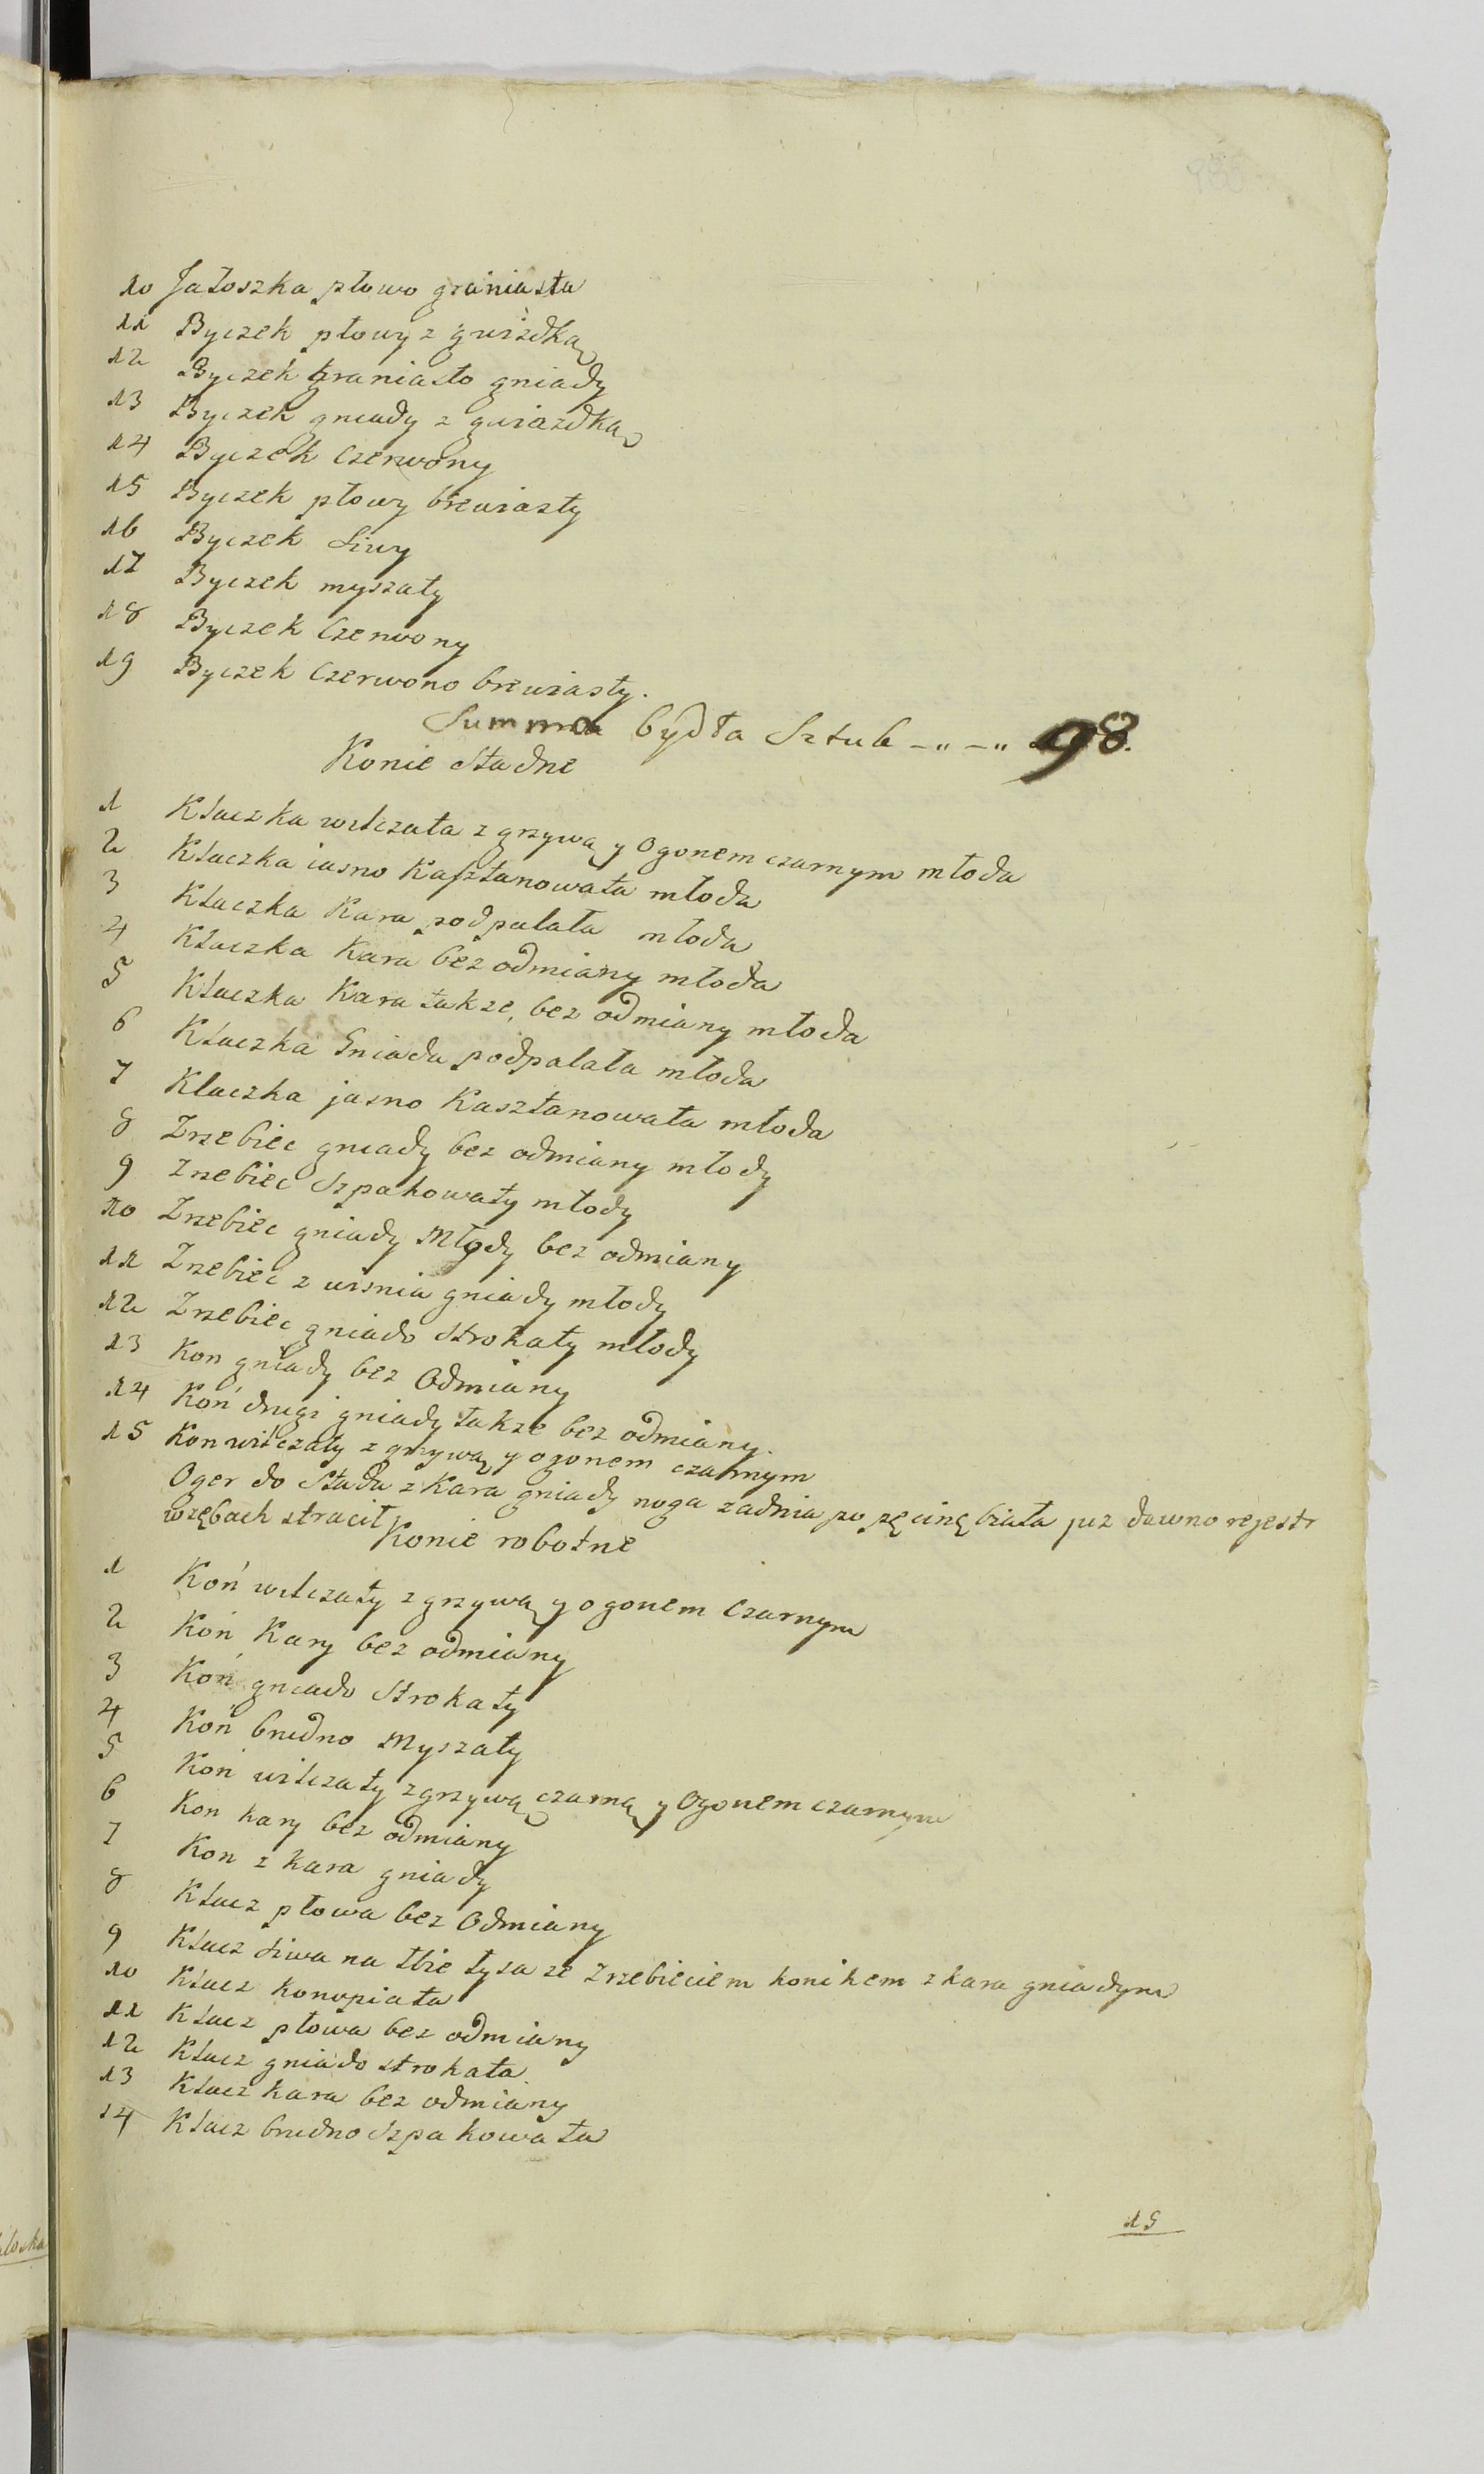 10 Jałoszka płowo graniasta
11 Byczek płowy z gwizdką
12 Byczek graniasto gniady
13 Byczek gniady z gwiazdką
14 Byczek Czerwony
15 Byczek płowy brewiasty
16 Byczek Siwy
17 Byczek myszaty
18 Byczek Czerwony
19 Byczek Czerwono brewiasty.
Summa bydła Sztuk -"-" 98.
Konie Stadne
1 Klaczka wilczata z grzywą y Ogonem czarnym młoda
2 Klaczka iasno Kasztanowata młoda
3 Klaczka Kara podpalała młoda
4 Klaczka Kara bez odmiany młoda
5 Klaczka Kara takze, bez odmiany młoda
6 Klaczka Gniada podpalała młoda
7 Klaczka jasno Kasztanowata młoda
8 Zrzebiec gniady bez odmiany młody
9 Zrzebiec Szpakowaty młody
10 Zrzebiec gniady Młody bez odmiany
11 Zrzebiec z wisnia gniady młody
12 Zrzebiec gniado Strokaty młody
13 Kon gniady bez Odmiany
14 Koń drugi gniady takze bez odmiany.
15 Kon wilczaty z grzywą y ogonem czarnym
Oger do Stada z Kara gniady noga zadnia po pęcinę biała juz dawno rejestr
w zębach stracił
Konie robotne
1 Koń wilczaty z grzywą y ogonem Czarnym
2 Koń Kary bez odmiany
3 Koń gniado Strokaty
4 Koń brudno Myszaty
5 Koń wilczaty z grzywą czarną y Ogonem czarnym
6 Kon kary bez odmiany
7 Kon z kara gniady
8 Klacz płowa bez Odmiany
9 Klacz Siwa na łbie łysa ze Zrzebieciem konikem z kara gniadym
10 Klacz Konopiata
11 Klacz płowa bez odmiany
12 Klacz gniado strokata
13 Klacz kara bez odmiany
14 Klacz brudno Szpakowata
15